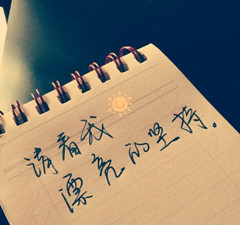 请看我
漂亮的坚持。